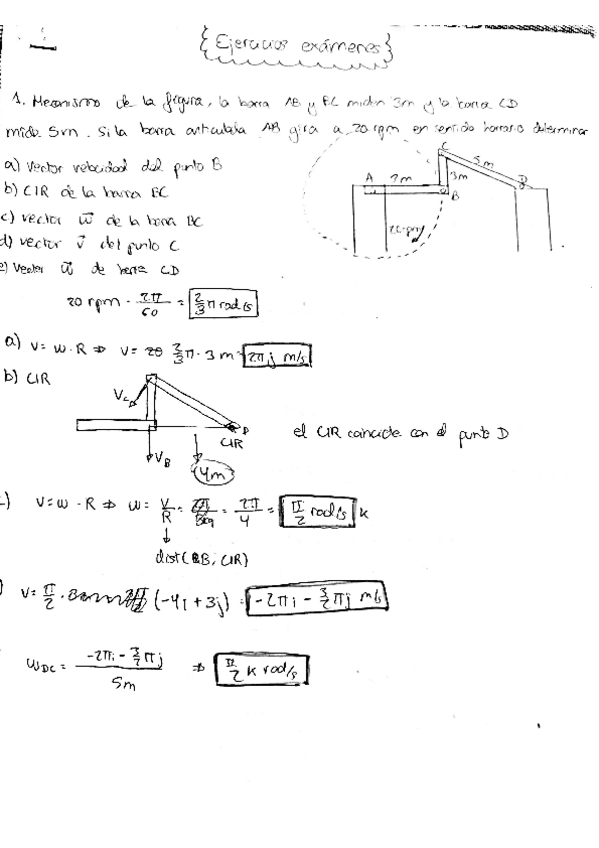 {Ejercicios exámenes}
1. Mecanismo de la figura, la barra AB y BC miden 3m y la barra CD
mide 5m. Si la barra articulada AB gira a 20 rpm en sentido horario determinar
a) Vector velocidad del punto B
b) CIR de la barra BC
c) vector w⃗ de la barra BC
d) vector v⃗ del punto C
e) Vector w⃗ de barra CD
A
B
C
D
3m
5m
20 rpm · 2π/60 = 2/3 π rad/s
a) V = w · R ⇒ V = 2/3 π · 3 m = 2πj m/s
b) CIR
Vc
D
CIR
VB
4m
el CIR coincide con el punto D
c) V = w · R ⇒ w = V/R = = 2π/4 = π/2 rad/s k
dist(B, CIR)
V = π/2 · (-4i + 3j) = -2πi - 3/2 πj m/s
wDC = (-2πi - 3/2 πj)/5m ⇒ π/2 k rad/s